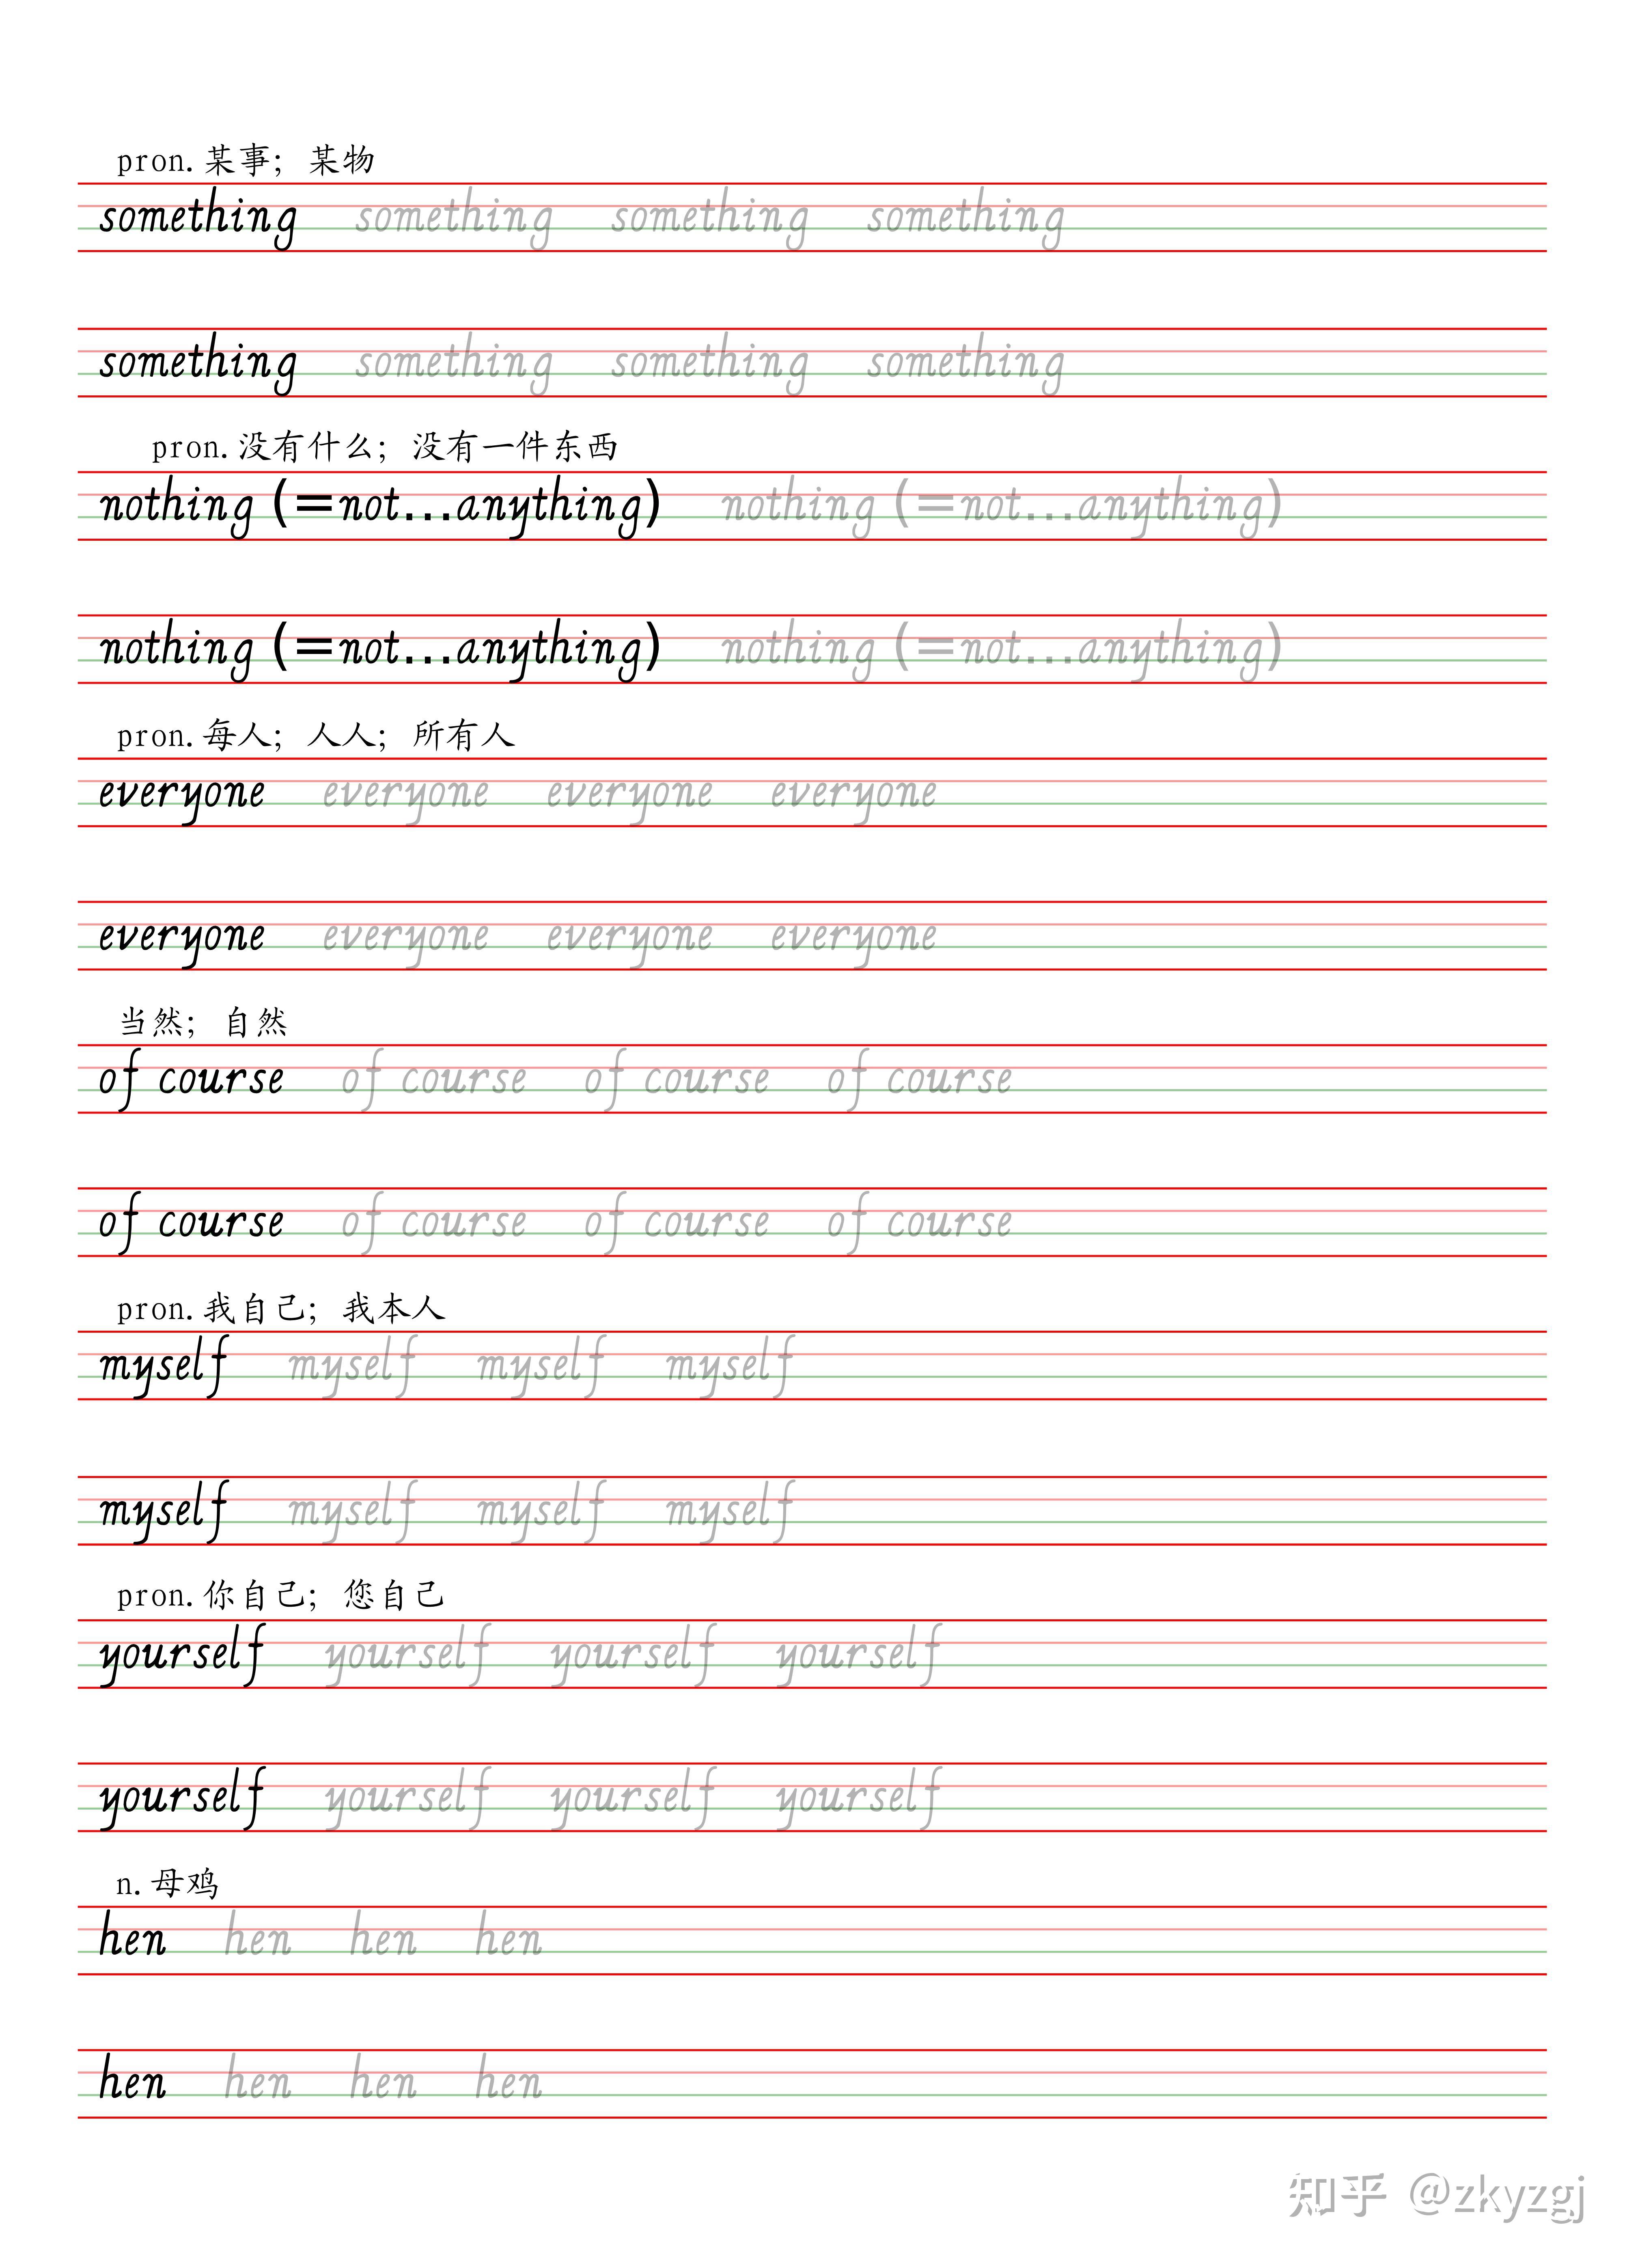 pron.某事；某物
something something something something
something something something something
pron.没有什么；没有一件东西
nothing (=not...anything) nothing (=not...anything)
nothing (=not...anything) nothing (=not...anything)
pron.每人；人人；所有人
everyone everyone everyone everyone
everyone everyone everyone everyone
当然；自然
of course of course of course of course
of course of course of course of course
pron.我自己；我本人
myself myself myself myself
myself myself myself myself
pron.你自己；您自己
yourself yourself yourself yourself
yourself yourself yourself yourself
n.母鸡
hen hen hen hen
hen hen hen hen
知乎 @zkyzgj